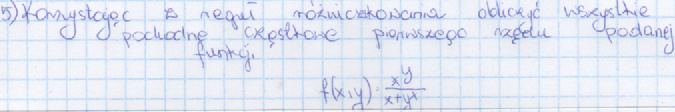 5) Korzystając z reguł różniczkowania obliczyć wszystkie
pochodne cząstkowe pierwszego rzędu podanej
funkcji.
f(x,y) = x^y / (x+y^x)